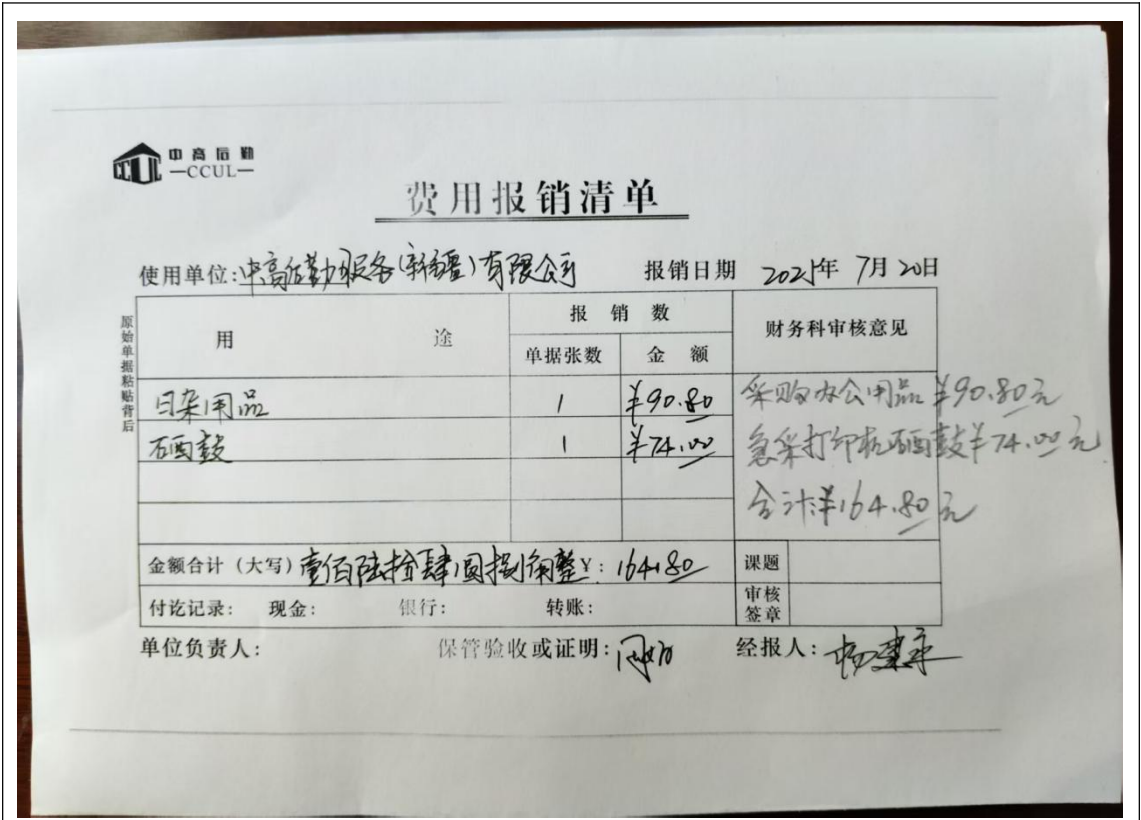 中高后勤
CCUL
—CCUL—
费用报销清单
使用单位:中高后勤服务(新疆)有限公司 报销日期 2021年 7月 20日
原始单据粘贴背后
用 途 报 销 数 财务科审核意见
单据张数 金 额
日杂用品 1 ¥90.80 采购办公用品¥90.80元
硒鼓 1 ¥74.00 急采打印机硒鼓¥74.00元
合计:¥164.80元
金额合计(大写)壹佰陆拾肆圆捌角整¥: 164.80 课题
付讫记录: 现金: 银行: 转账: 审核签章
单位负责人: 保管验收或证明: 经报人: